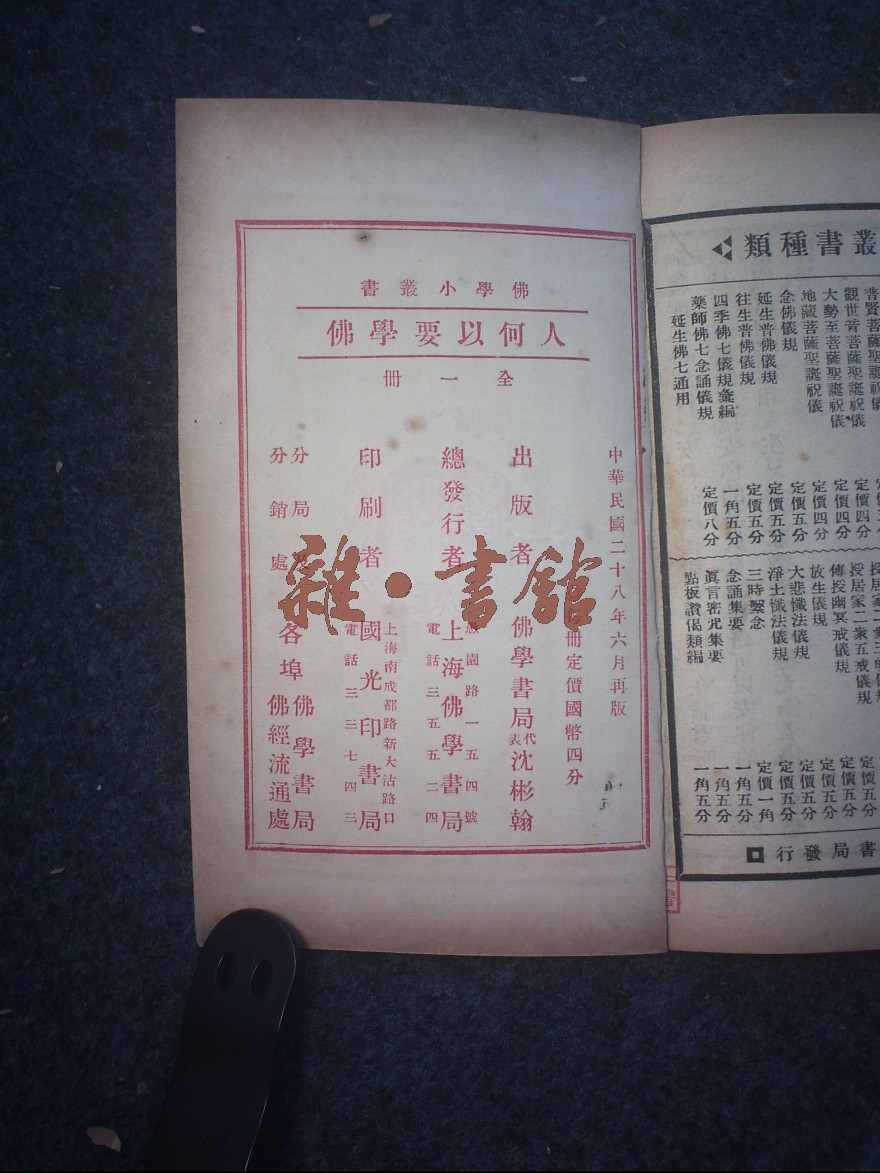 佛學小叢書
人何以要學佛
全一冊
中華民國二十八年六月再版
每冊定價國幣四分
出版者 佛學書局代表沈彬翰
總發行者 上海佛學書局
愚園路一五四號
電話三五五二四
印刷者 國光印書局
上海南成都路新大沽路口
電話三三七四三
分局及分銷處 各埠佛學書局佛經流通處
雜·書館
叢書種類
普賢菩薩聖誕祝儀 定價四分
觀世音菩薩聖誕祝儀 定價四分
大勢至菩薩聖誕祝儀 定價四分
地藏菩薩聖誕祝儀 定價四分
念佛儀規 定價五分
延生普佛儀規 定價五分
往生普佛儀規 定價五分
四季佛七儀規彙編 一角五分
藥師佛七念誦儀規
延生佛七通用 定價八分
授居家二衆五戒儀規 定價五分
傳授幽冥戒儀規 定價五分
放生儀規 定價五分
大悲懺法儀規 定價五分
淨土懺法儀規 定價一角
三時繫念 一角五分
念誦集要 一角五分
眞言密咒集要
點板讚偈類編 一角五分
書局發行